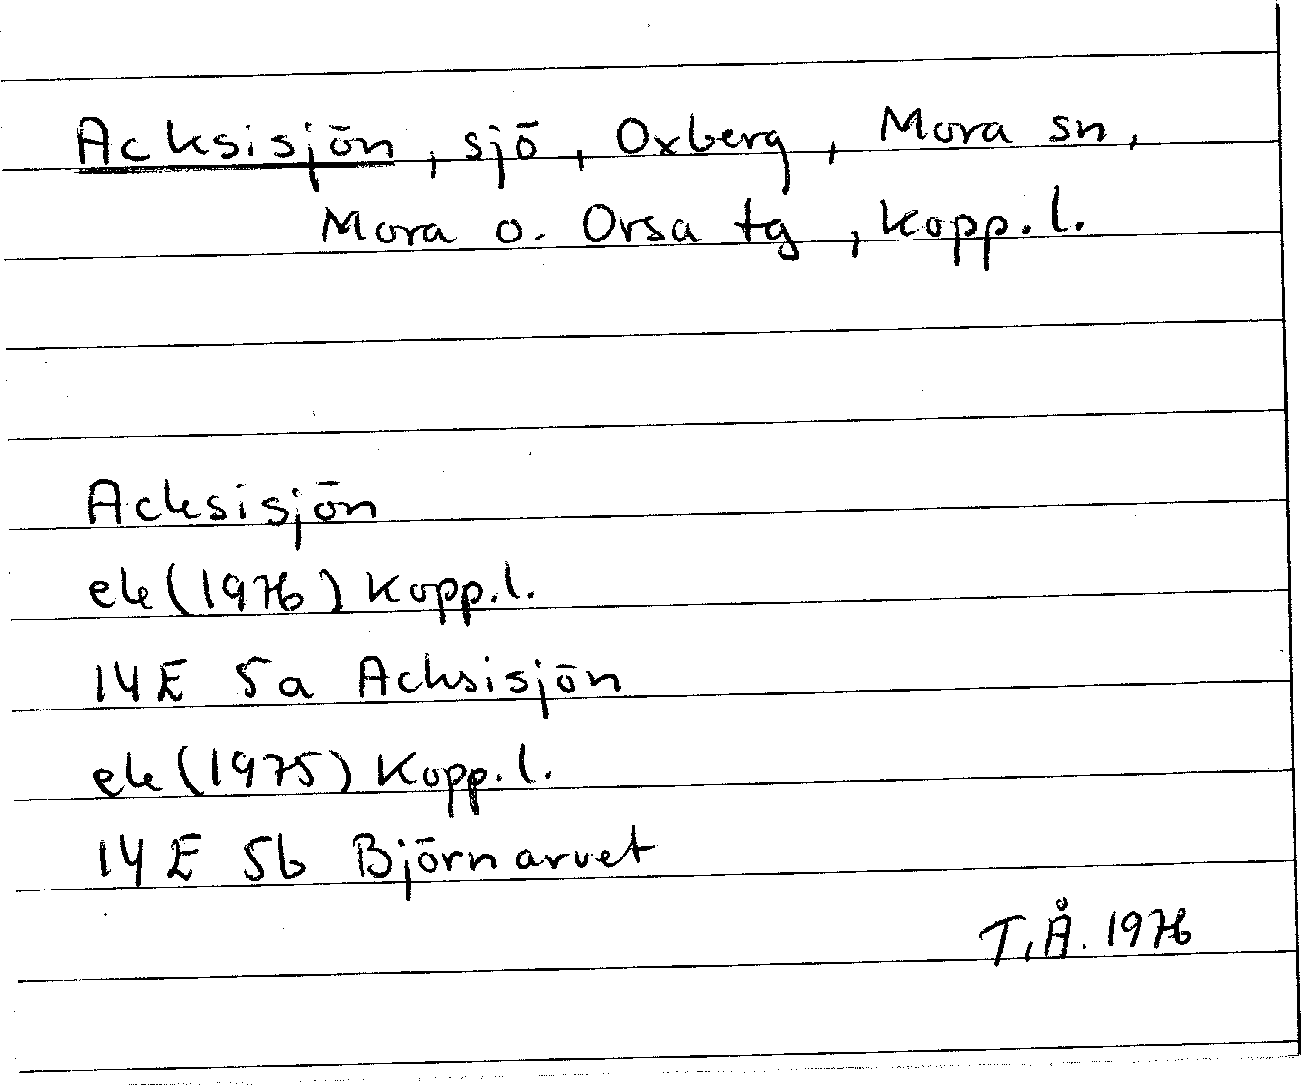 Acksisjön, sjö, Oxberg, Mora sn,
Mora o. Orsa tg, Kopp. l.
Acksisjön
ek (1976) Kopp. l.
14E 5a Acksisjön
ek (1975) Kopp. l.
14E 5b Björnarvet
T.Å. 1976